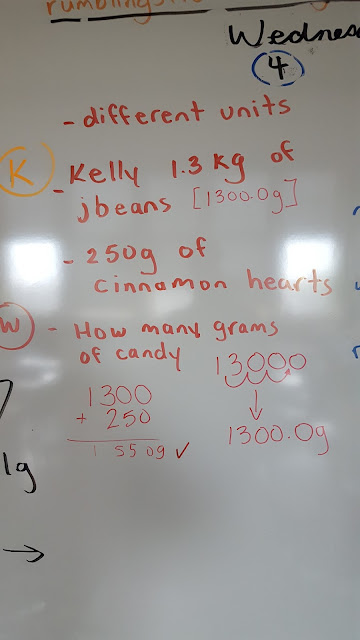 Wednes
4
- different units
K
- Kelly 1.3 kg of
jbeans [1300.0g]
- 250g of
cinnamon hearts
W
- How many grams
of candy
13000
1300
+ 250
1550g ✓
↓
1300.0g
1g
→